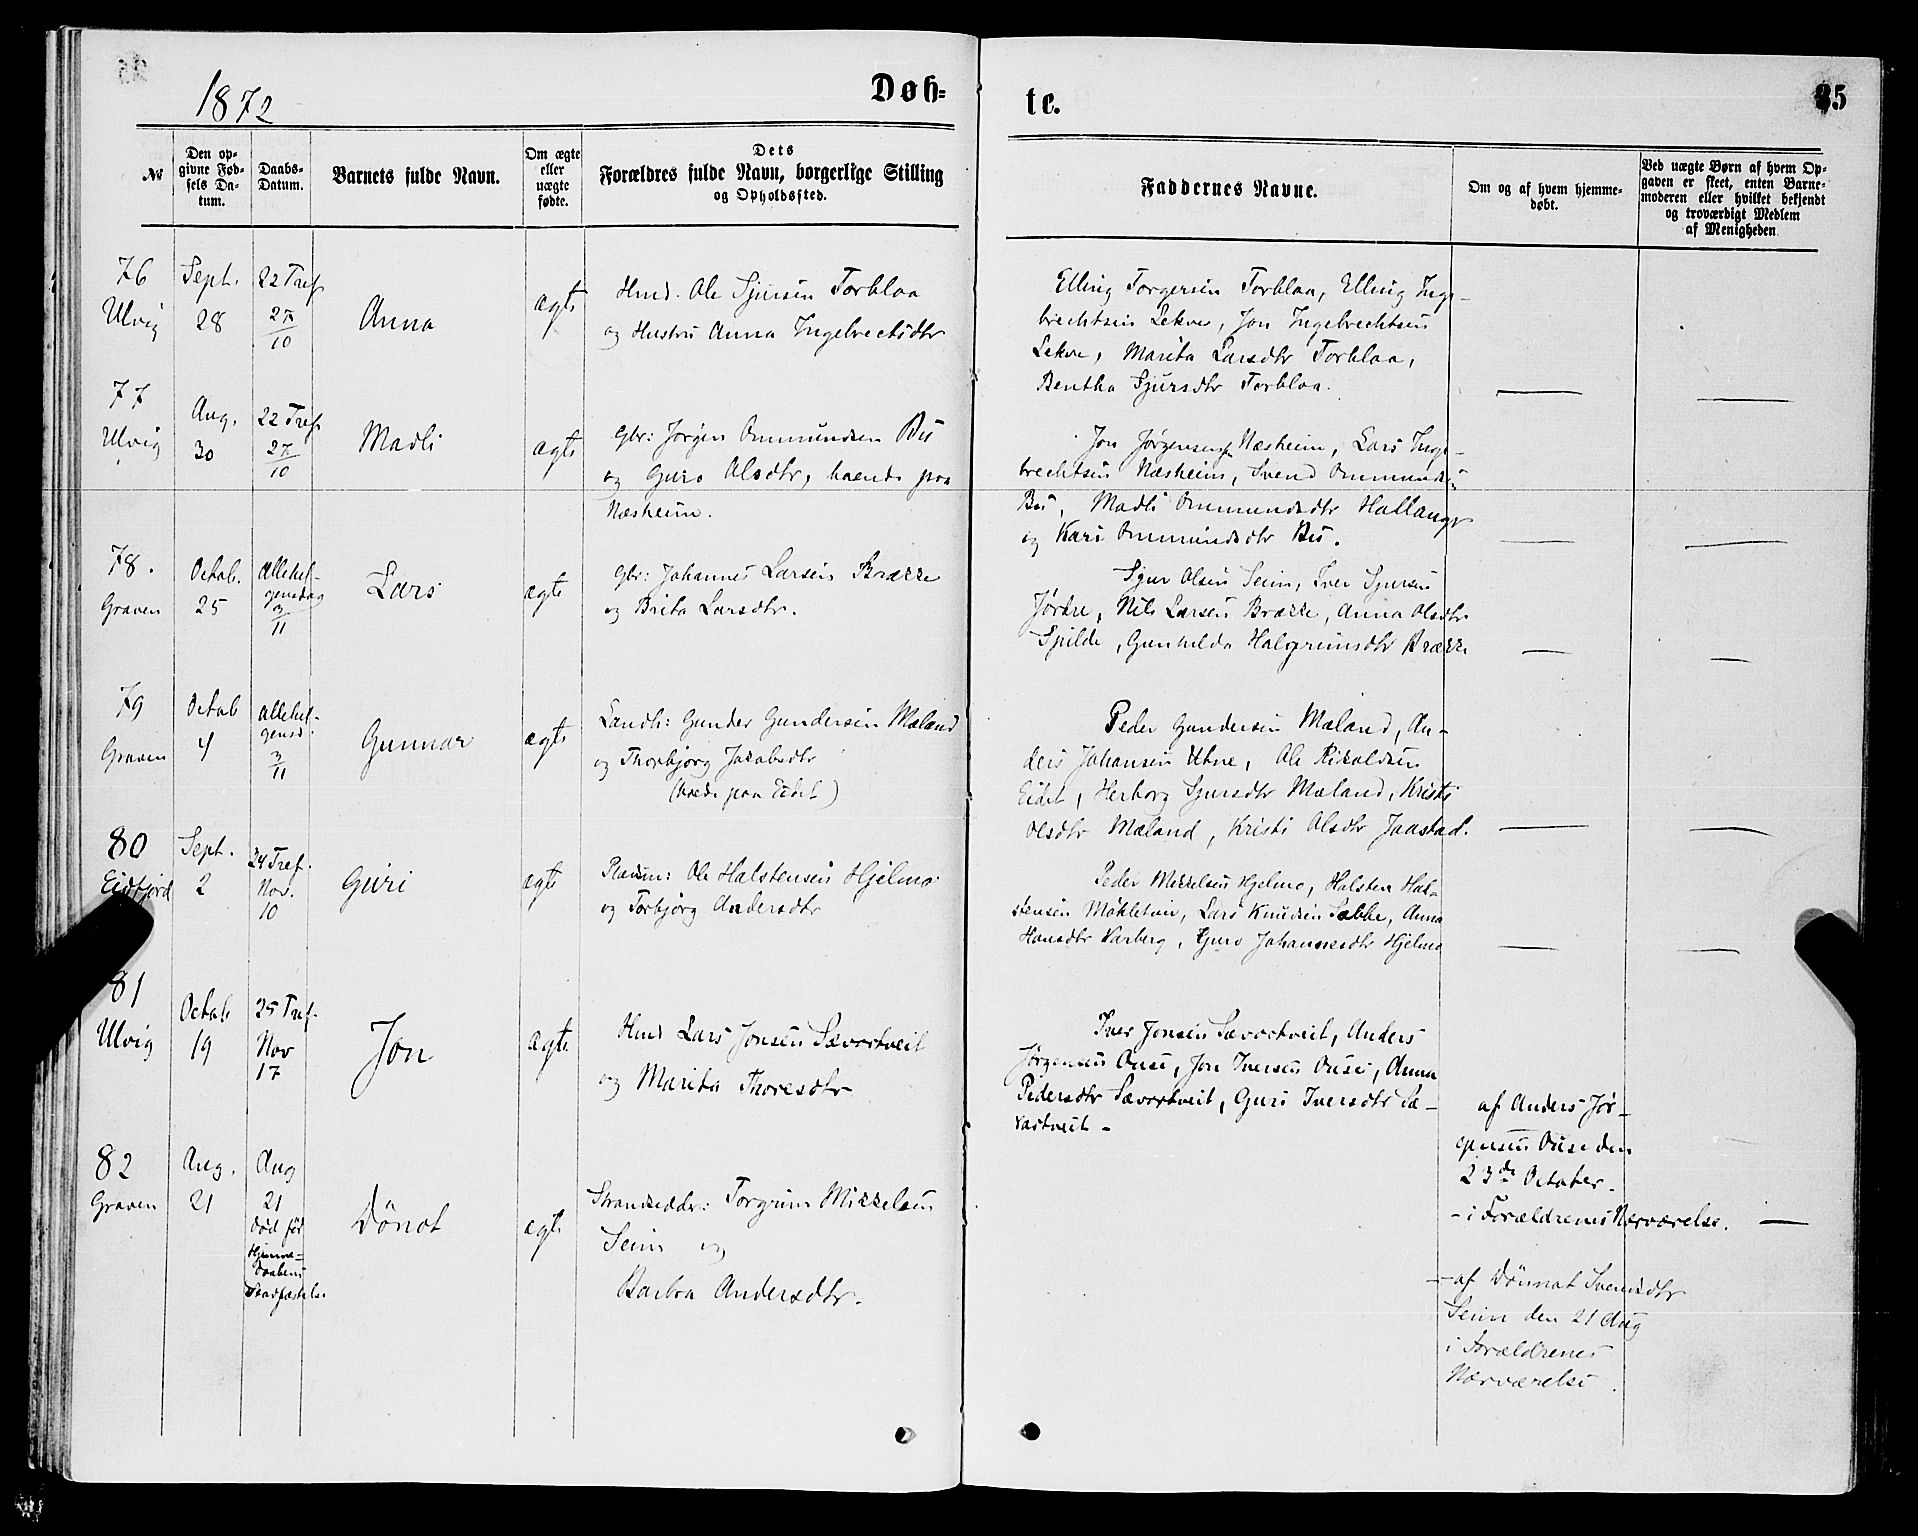 1872
Døb=
te.
35
№
Den op-
givne Fød-
sels Da-
tum.
Daabs-
Datum.
Barnets fulde Navn.
Om ægte
eller
uægte
fødte.
Dets
Forældres fulde Navn, borgerlige Stilling
og Opholdssted.
Faddernes Navne.
Om og af hvem hjemme-
døbt.
Ved uægte Børn af hvem Op-
gaven er skeet, enten Barne-
moderen eller hvilket bekjendt
og troværdigt Medlem
af Menigheden
76
Ulvig
Sept.
28
22 Tref.
27
10
Anna
ægte
Hmd. Ole Sjursen Torblaa
og Hustru Anna Ingebrectsdtr
Elling Torgersen Torblaa, Elling Inge-
brechtsen Lekve, Jon Ingebrechtsen
Lekve, Marita Larsdtr Torblaa,
Bentha Sjursdtr Torblaa.
77
Ulvig
Aug.
30
22 Tref
27
10
Madli
ægte
Gbr: Jørgen Ommundsen Bu
og Guro Olsdtr, hvende paa
Næsheim.
Jon Jørgensen Næsheim, Lars Inge-
brechtsen Næsheim, Svend Ommundsen
Bu, Madli Ommundsdtr Hallanger
og Kari Ommundsdtr Bu.
78.
Graven
Octob.
25
Allehel-
gensdag
3
11
Lars
ægte
Gbr: Johannes Larsen Brække
og Brita Larsdtr.
Sjur Olsen Seim, Iver Sjursen
Jørdre, Nils Larsen Brække, Anna Olsdtr
Spilde, Gunhilda Halgrimsdtr Brække
79
Graven
Octob
4
Allehel-
gensd.
3
11
Gunnar
ægte
Landh: Gunder Gundersen Mæland
og Thorbjørg Jakobsdtr
(hvede paa Eidet)
Peder Gundersen Mæland, An-
ders Johansen Utne, Ole Rikoldsen
Eidet, Herborg Sjursdtr Mæland, Kristi
Olsdtr Mæland, Kristi Olsdtr Jaastad.
80
Eidfjord
Sept.
2
24 Tref.
Nov.
10
Guri
ægte
Pladsm: Ole Halstensen Hjelmo
og Torbjørg Andersdtr
Peder Mikkelsen Hjelmo, Halsten Hal-
stensen Møkletun, Lars Knudsen Sabbe, Anna
Hansdtr Varberg, Guro Johannesdtr Hjelmo
81
Ulvig
Octob.
19
25 Tref.
Nov
17
Jon
ægte
Hmd Lars Jonsen Sævartveit
og Marita Thoresdtr
Iver Jonsen Sævartveit, Anders
Jørgensen Ouse, Jon Iversen Ouse, Anna
Pedersdtr Sævartveit, Guri Iversdtr Sæ-
vartveit -
af Anders Jør-
gensen Ouse den
23de October.
- i Forældrenes Nærværelse.
82
Graven
Aug.
21
Aug
21
død før
Hjemme=
daabens
Stadfæstelse
Dönot
ægte
Strandsidder: Torgrim Mikkelsen
Seim og
Barbra Andersdtr.
- af Dönnot Svendsdtr
Seim den 21 Aug
i Forældrenes
Nærværelse.